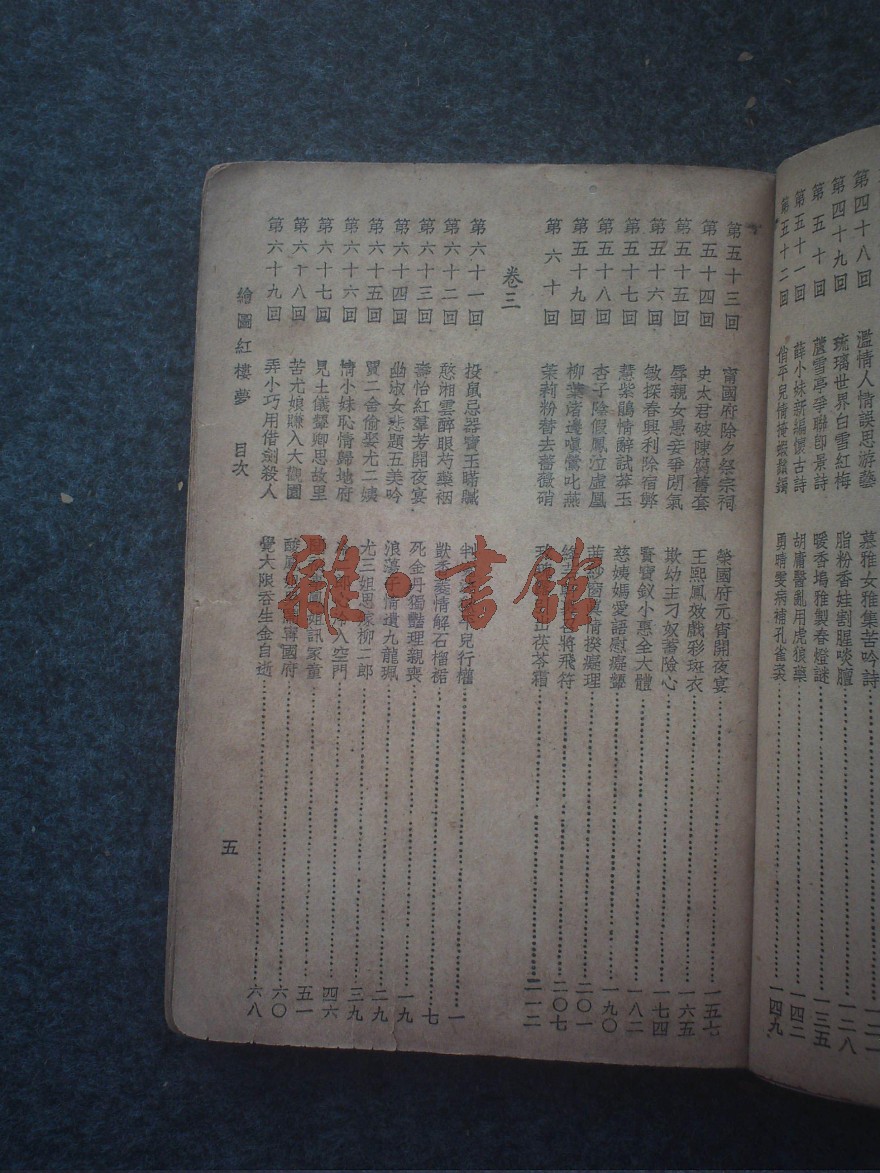 第四十八回 濫情人情誤思游藝 慕雅女雅集苦吟詩
第四十九回 琉璃世界白雪紅梅 脂粉香娃割腥啖膻 一二八
第五十回 蘆雪亭爭聯即景詩 暖香塢雅製春燈謎 一三五
第五十一回 薛小妹新編懷古詩 胡庸醫亂用虎狼藥 一四二
第五十二回 俏平兒情掩蝦鬚鐲 勇晴雯病補孔雀裘 一四九
第五十三回 甯國府除夕祭宗祠 榮國府元宵開夜宴 一五七
第五十四回 史太君破陳腐舊套 王熙鳳效戲彩斑衣 一六五
第五十五回 辱親女愚妾爭閒氣 欺幼主刁奴蓄險心 一七四
第五十六回 敏探春興利除宿弊 賢寶釵小惠全大體 一八二
第五十七回 慧紫鵑情辭試莽玉 慈姨媽愛語慰癡顰 一九〇
第五十八回 杏子陰假鳳泣虛凰 茜紗窗真情揆癡理 二〇一
第五十九回 柳葉渚邊嗔鶯叱燕 絳 將飛符 二〇七
第六十回 茉莉粉替去薔薇硝 茯苓霜 二一二
卷三
第六十一回 投鼠忌器寶玉瞞贓 判 平兒行權 一
第六十二回 憨湘雲醉眠芍藥裀 獃香菱情解石榴裙 七
第六十三回 壽怡紅羣芳開夜宴 死金丹獨豔理親喪 一九
第六十四回 幽淑女悲題五美吟 浪蕩子情遺九龍珮 二九
第六十五回 賈二舍偷娶尤二姨 尤三姐思嫁柳二郎 三九
第六十六回 情小妹恥情歸地府 入空門 四六
第六十七回 見土儀顰卿思故里 鳳姐訊家童 五一
第六十八回 苦尤娘賺入大觀園 酸鳳 甯國府 六〇
第六十九回 弄小巧用借劍殺人 覺大限吞生金自逝 六八
繪圖紅樓夢 目次
五
雜·書館